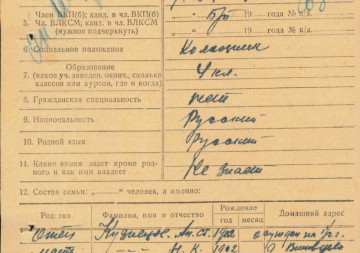 4. Член ВКП(б); канд. в чл. ВКП(б)
5. Чл. ВЛКСМ; канд. в чл. ВЛКСМ
(нужное подчеркнуть)
19 года № п/д.
19 года № к/д.
6. Социальное положение
Колхозник
Образование
7. (каков уч. заведен. оконч., сколько
классов или курсов, где и когда)
4 кл.
8. Гражданская специальность
нет
9. Национальность
Русский
10. Родной язык
Русский
11. Какие языки знает кроме род-
ного и как ими владеет
Не знает
12. Состав семьи: „ “ человек, а именно:
Родство Фамилия, имя и отчество Рождение год месяц Домашний адрес
Отец Кузнецов
мать Н. К. 1902